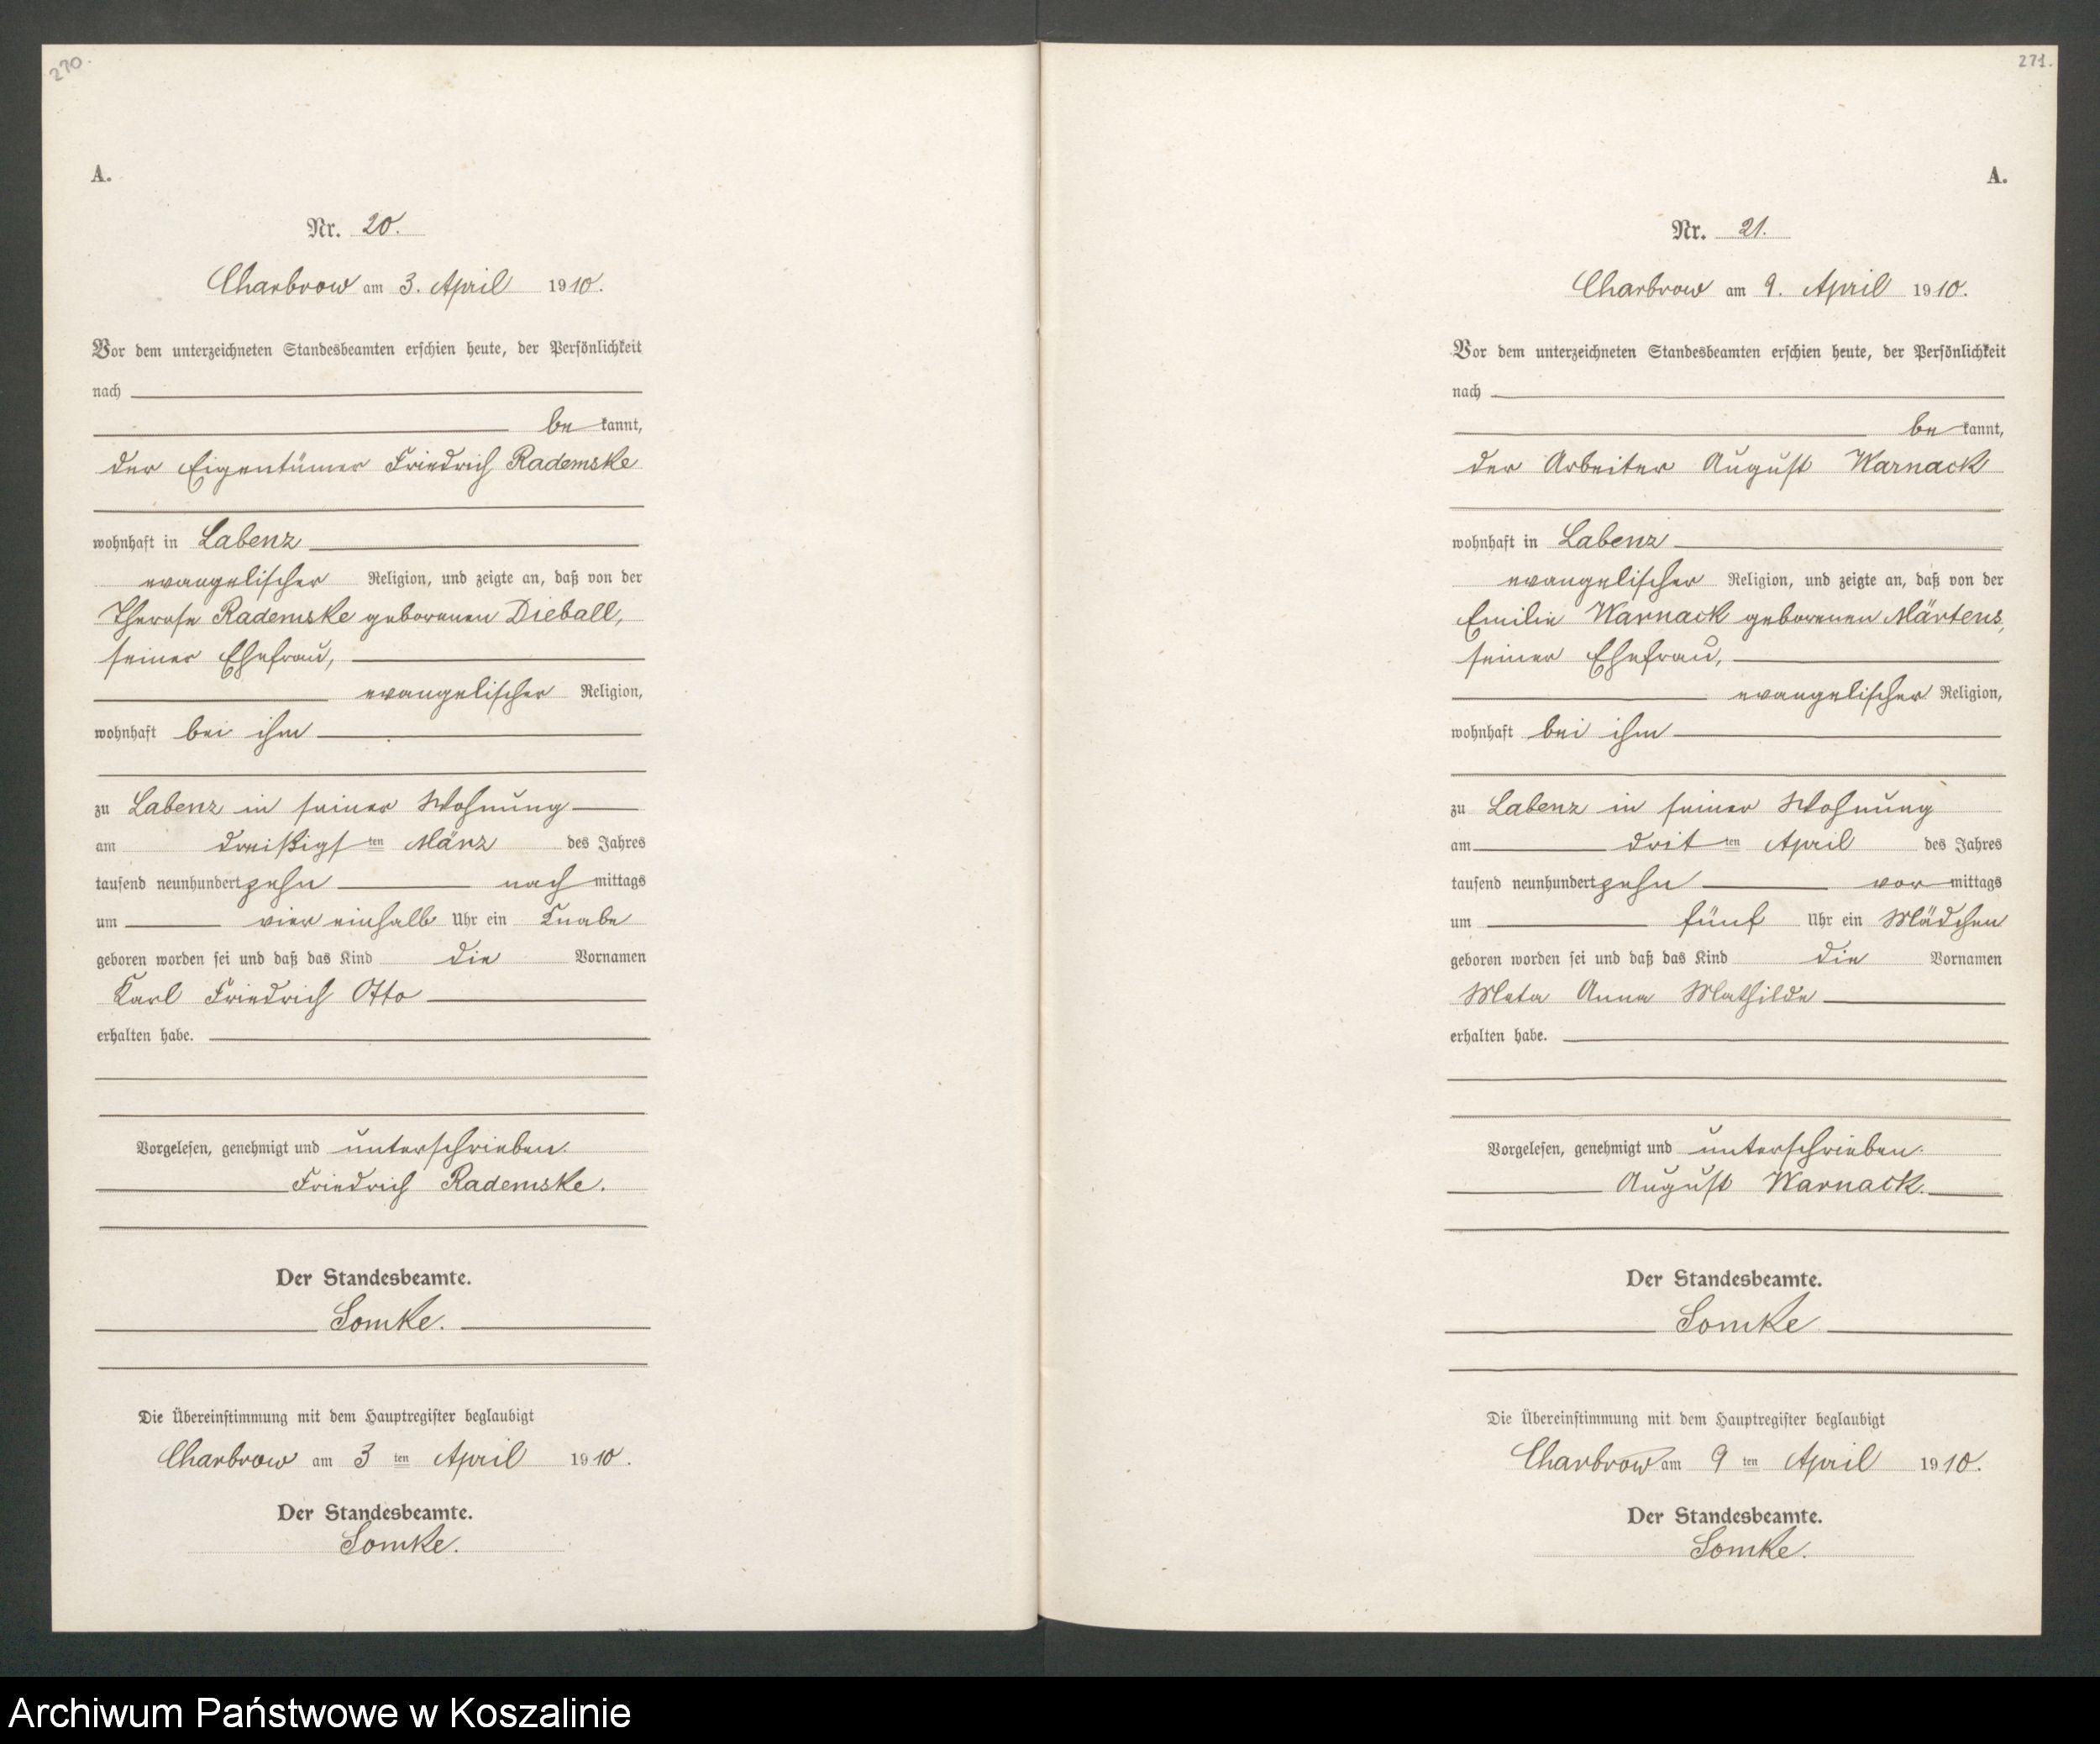 270.
A.
Nr. 20.
Charbrow am 3. April 1910.
Vor dem unterzeichneten Standesbeamten erschien heute, der Persönlichkeit
nach
be kannt,
der Eigentümer Friedrich Rademske
wohnhaft in Labenz
evangelischer Religion, und zeigte an, daß von der
Therese Rademske geborenen Dieball,
seiner Ehefrau,
evangelischer Religion,
wohnhaft bei ihm
zu Labenz in seiner Wohnung
am dreißigsten März des Jahres
tausend neunhundert zehn nach mittags
um vier einhalb Uhr ein Knabe
geboren worden sei und daß das Kind die Vornamen
Karl Friedrich Otto
erhalten habe.
Vorgelesen, genehmigt und unterschrieben.
Friedrich Rademske.
Der Standesbeamte.
Somke.
Die Übereinstimmung mit dem Hauptregister beglaubigt
Charbrow am 3 ten April 1910.
Der Standesbeamte.
Somke.
271.
A.
Nr. 21.
Charbrow am 9. April 1910.
Vor dem unterzeichneten Standesbeamten erschien heute, der Persönlichkeit
nach
be kannt,
der Arbeiter August Warnack
wohnhaft in Labenz
evangelischer Religion, und zeigte an, daß von der
Emilie Warnack geborenen Märtens,
seiner Ehefrau,
evangelischer Religion,
wohnhaft bei ihm
zu Labenz in seiner Wohnung
am dritten April des Jahres
tausend neunhundert zehn vor mittags
um fünf Uhr ein Mädchen
geboren worden sei und daß das Kind die Vornamen
Meta Anna Mathilde
erhalten habe.
Vorgelesen, genehmigt und unterschrieben.
August Warnack.
Der Standesbeamte.
Somke
Die Übereinstimmung mit dem Hauptregister beglaubigt
Charbrow am 9 ten April 1910.
Der Standesbeamte.
Somke.
Archiwum Państwowe w Koszalinie